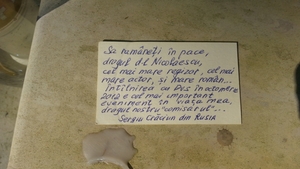 Sa rămâneți în pace,
dragul d-l Nicolaescu,
cel mai mare regizor, cel mai
mare actor, și mare român...
Întîlnirea cu Dvs în octombrie
2012 e cel mai important
eveniment în viața mea,
dragul nostru "comisarul"...
Sergiu Crăciun din Rusia